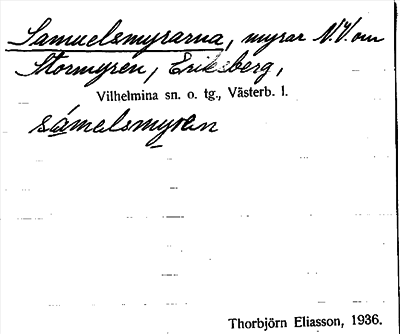 Samuelsmyrarna, myrar N.V. om
Stormyren, Eriksberg,
Vilhelmina sn. o. tg., Västerb. l.
sámelsmyren
Thorbjörn Eliasson, 1936.